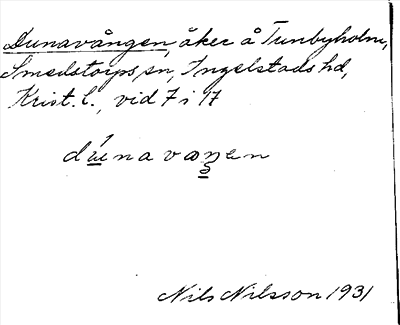 Dunavången, åker å Tunbyholm,
Smedstorps sn, Ingelstads hd,
Krist. l., vid 7 i 17
dúnavaŋen
Nils Nilsson 1931